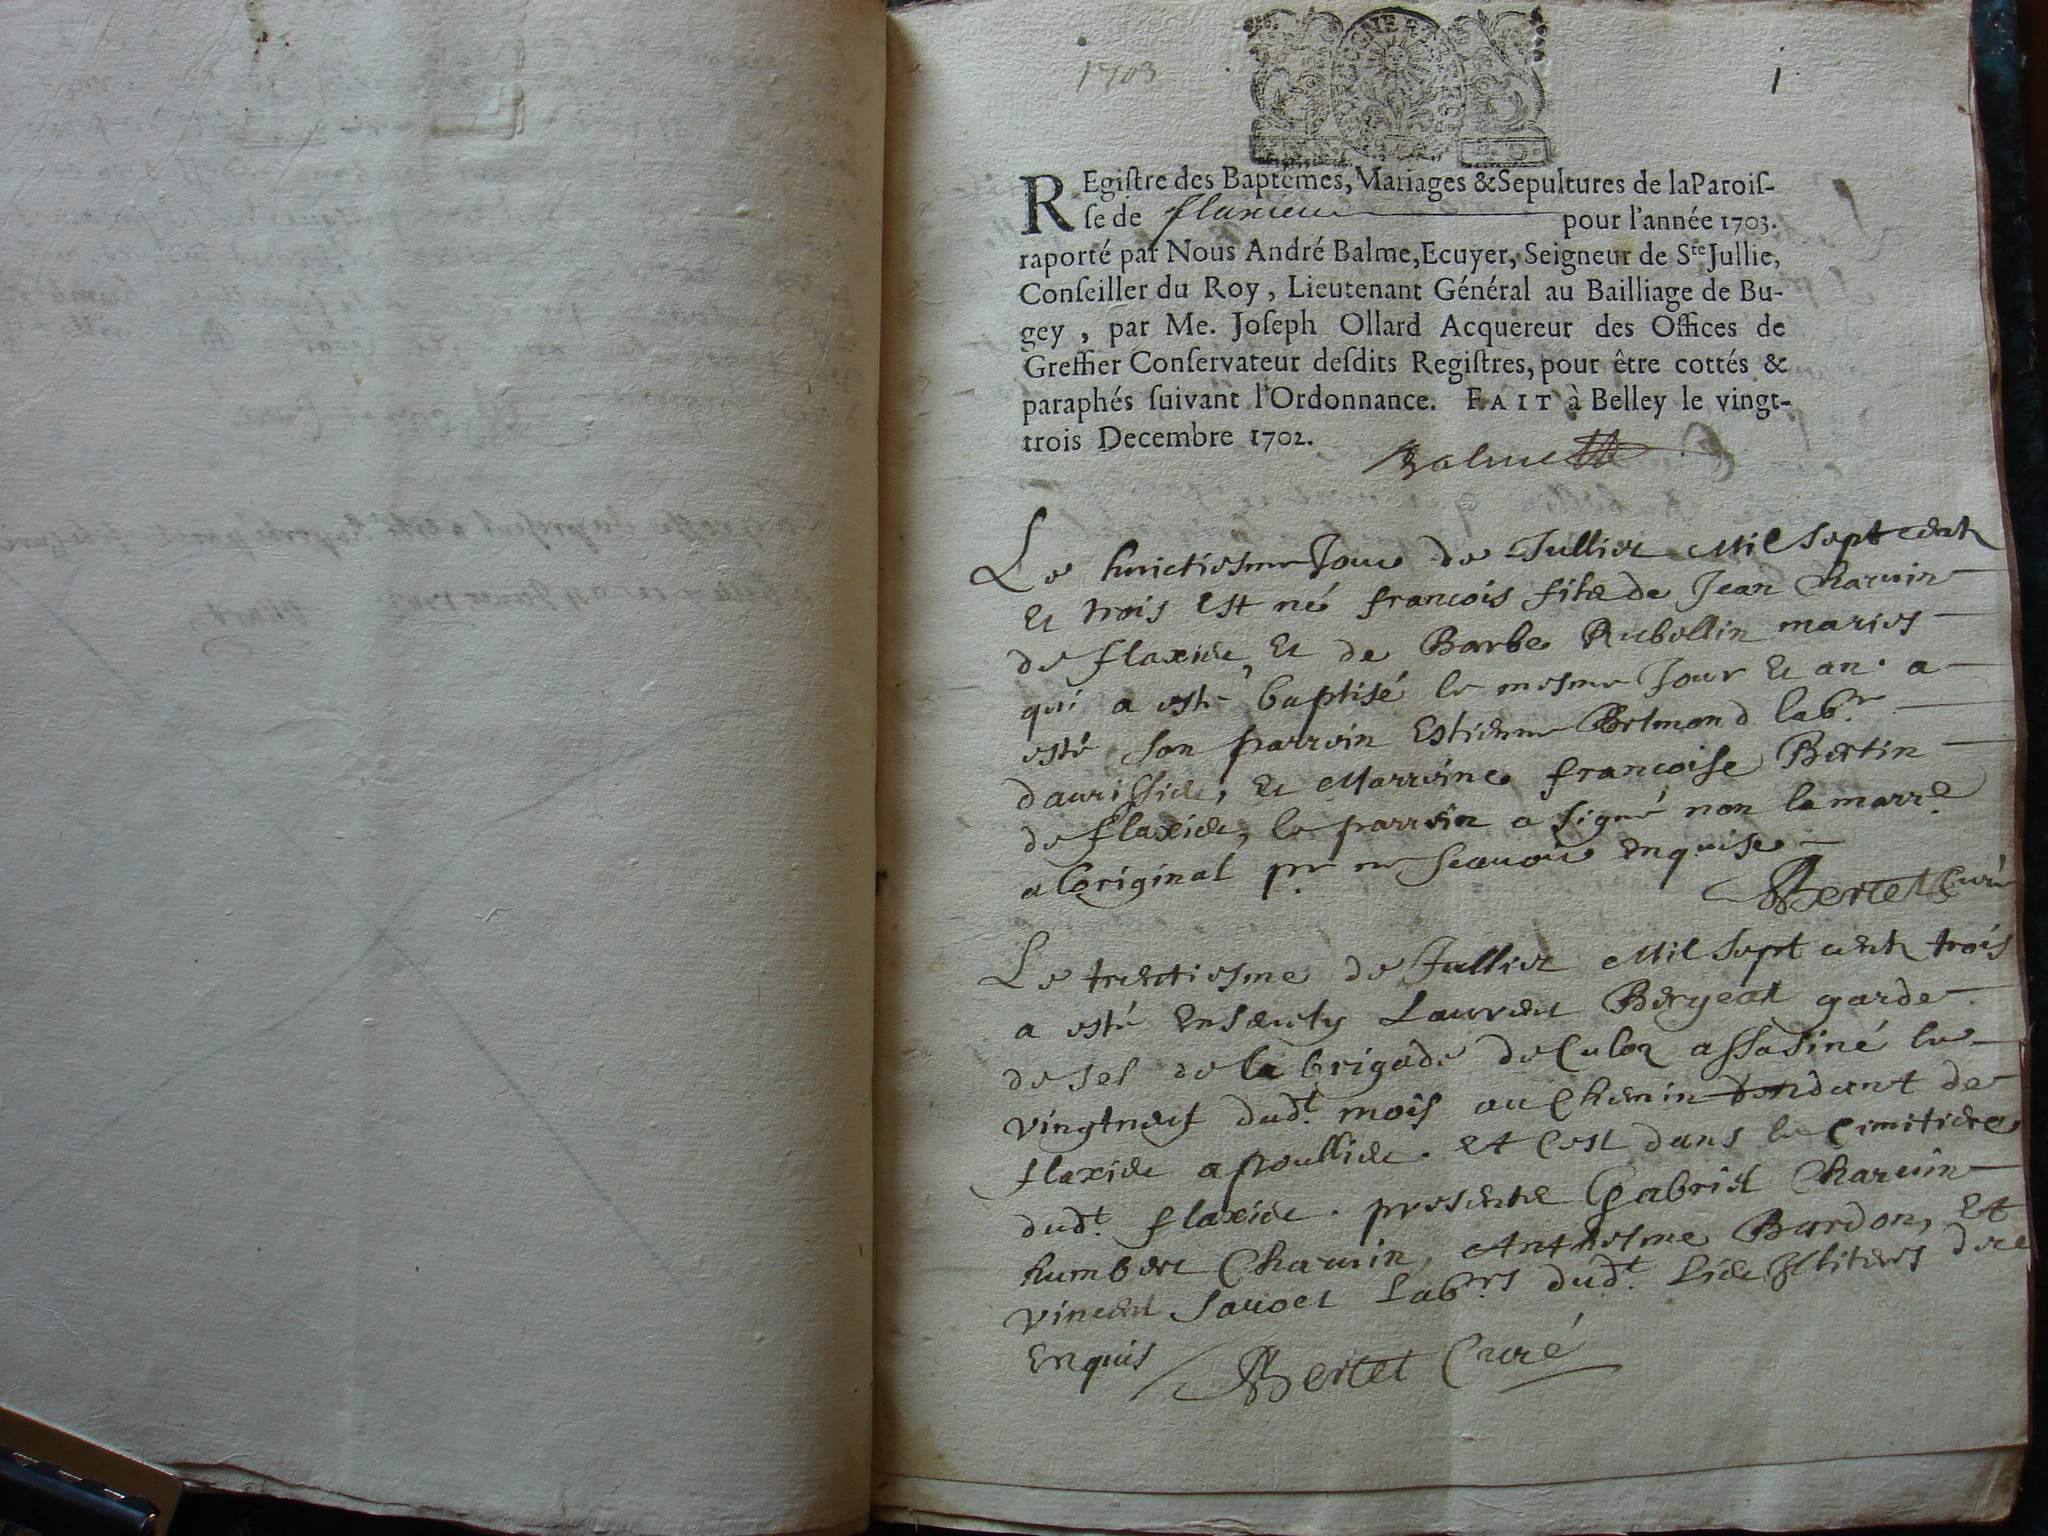 1703
1
REgiſtre des Baptêmes, Mariages & Sepultures de la Paroiſ-
ſe de flaxieu pour l'année 1703.
raporté par Nous André Balme, Ecuyer, Seigneur de Ste Jullie,
Conſeiller du Roy, Lieutenant Général au Bailliage de Bu-
gey, par Me. Joſeph Ollard Acquereur des Offices de
Greffier Conſervateur deſdits Regiſtres, pour être cottés &
paraphés ſuivant l'Ordonnance. FAIT à Belley le vingt-
trois Decembre 1702.
Balme
Le huictiesme Jour de Jullier Mil Sept cent
Et trois Est né francois fils de Jean Charuin
de flaxieu, Et de Barbe Rubellin maries
qui a esté baptisé le mesme Jour Et an. a
esté son parrein Estienne labr.
Et Marreine francoise Bertin
de flaxieu, le parrein a signé non la marre
a Loriginal pr ne scauoir Enquise
Bertet Curé
Le trentiesme de Jullier Mil Sept cent trois
a esté Enseuely Laurent Bergeat garde
de sel de la brigade de Culoz assasiné le
vingtneuf dudt. mois au Chemin tendant de
flaxieu a poullieu. et Cest dans le Cimitiere
dudt. flaxieu. presents Gabriel Charuin
humbert Charuin, Anthesme Bardon, et
vincent Sauoet Labrs dudt. Lieu Illiteres de ce
Enquis Bertet Curé